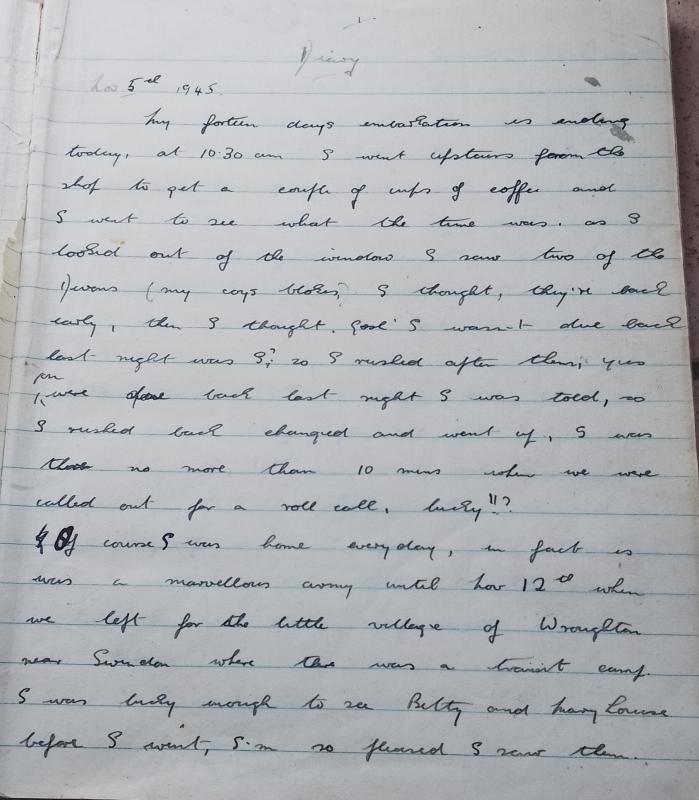 1.
Diary
Nov 5th 1945.
My forteen days embarkation is ending
today, at 10.30 am I went upstairs from the
shop to get a couple of cups of coffee and
I went to see what the time was. as I
looked out of the window I saw two of the
(my coys blokes) I thought, they're back
early, then I thought. Gosh! I wasn't due back
last night was I?; so I rushed after them, yes
you were due back last night I was told, so
I rushed back changed and went up, I was
there no more than 10 mins when we were
called out for a roll call, lucky!!?
Of course I was home everyday, in fact is
was a marvellous army until Nov 12th when
we left for the little village of Wroughton
near Swindon where there was a transit camp.
I was lucky enough to see Betty and Mary Louise
before I went, I'm so pleased I saw them.